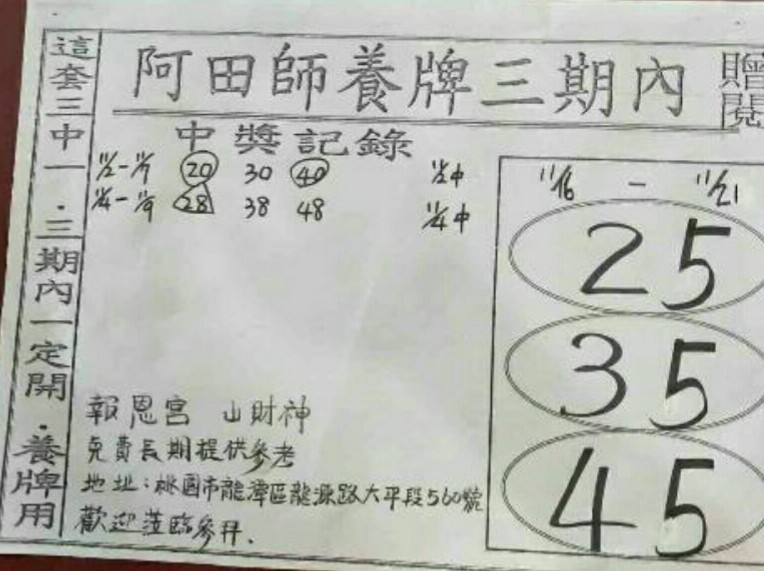 阿田師養牌三期內
贈閱
這套三中一．三期內一定開．養牌用
中獎記錄
11/2-11/7 20 30 40 11/2中
11/4-11/9 28 38 48 11/4中
11/16 - 11/21
25
35
45
報恩宮 山財神
免費長期提供參考
地址：桃園市龍潭區龍源路大平段560號
歡迎蒞臨參拜．